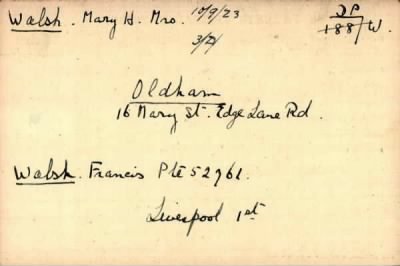 Walsh. Mary H. Mrs. 10/9/23 DP
3/21 188/W.
Oldham
16 Mary St. Edge Lane Rd.
Walsh. Francis Pte 52961.
Liverpool 1st